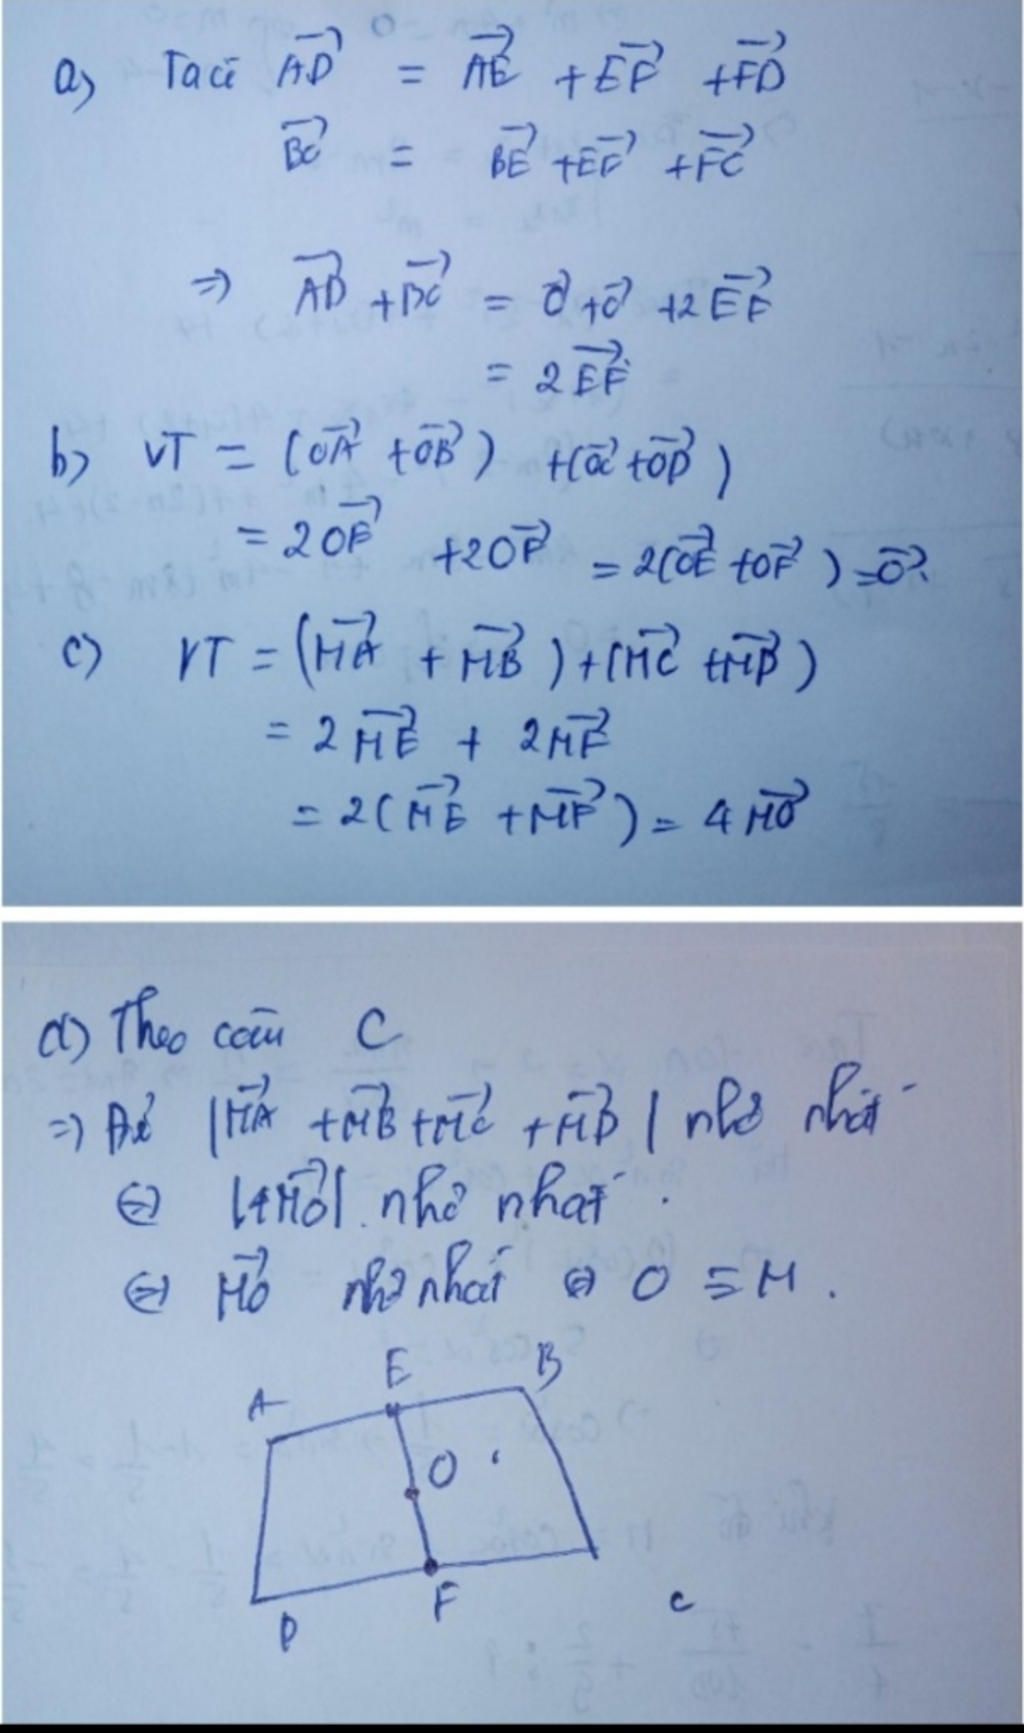 a) Ta có AD⃗ = AE⃗ + EF⃗ + FD⃗
BC⃗ = BE⃗ + EF⃗ + FC⃗
=> AD⃗ + BC⃗ = O⃗ + O⃗ + 2EF⃗
= 2EF⃗
b) VT = (OA⃗ + OB⃗) + (OC⃗ + OD⃗)
= 2OE⃗ + 2OF⃗ = 2(OE⃗ + OF⃗) = O⃗
c) VT = (MA⃗ + MB⃗) + (MC⃗ + MD⃗)
= 2ME⃗ + 2MF⃗
= 2(ME⃗ + MF⃗) = 4MO⃗
d) Theo câu C
=> Để |MA⃗ + MB⃗ + MC⃗ + MD⃗| nhỏ nhất
⇔ |4MO⃗| nhỏ nhất.
⇔ MO⃗ nhỏ nhất ⇔ O ≡ M.
E B
A
O
D F C